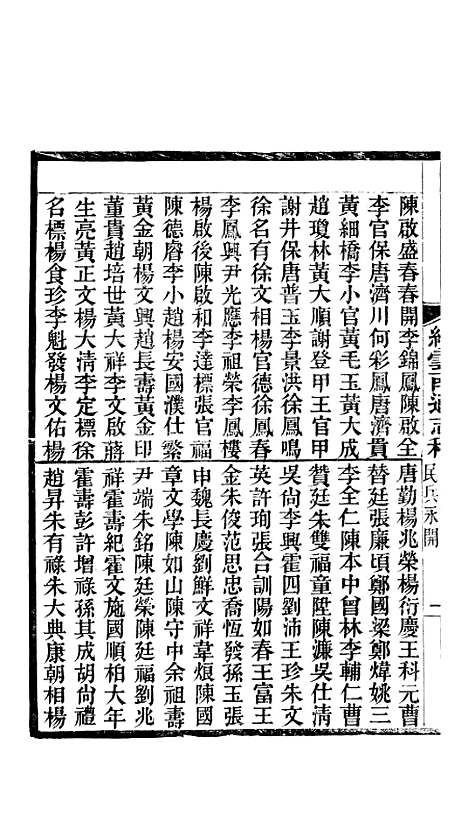 陳啟盛春春開李錦鳳陳啟全唐勤楊兆榮楊衍慶王科元曹
李官保唐濟川何彩鳳唐濟貴替廷張廉頃鄭國梁鄭煒姚三
黃細橋李小官黃毛玉黃大成李全仁陳本中曾林李輔仁曹
趙瓊林黃大順謝登甲王官甲贊廷朱雙福童陞陳濂吳仕清
謝井保唐普玉李景洪徐鳳鳴吳尙李興霍四劉沛王珍朱文
徐名有徐文相楊官德徐鳳春英許珣張合訓陽如春王富王
李鳳興尹光應李祖榮李鳳樓金朱俊范思忠喬恆發孫玉張
楊啟後陳啟和李達標張官福申魏長慶劉鮮文祥韋煩陳國
陳德睿李小趙楊安國濮仕繁章文學陳如山陳守中余祖壽
黃金朝楊文興趙長壽黃金印尹端朱銘陳廷榮陳廷福劉兆
董貴趙培世黃大祥李文啟蔣祥霍壽紀霍文施國順相大年
生亮黃正文楊大清李定標徐霍壽彭許增祿孫其成胡尙禮
名標楊食珍李魁發楊文佑楊趙昇朱有祿朱大典康朝相楊